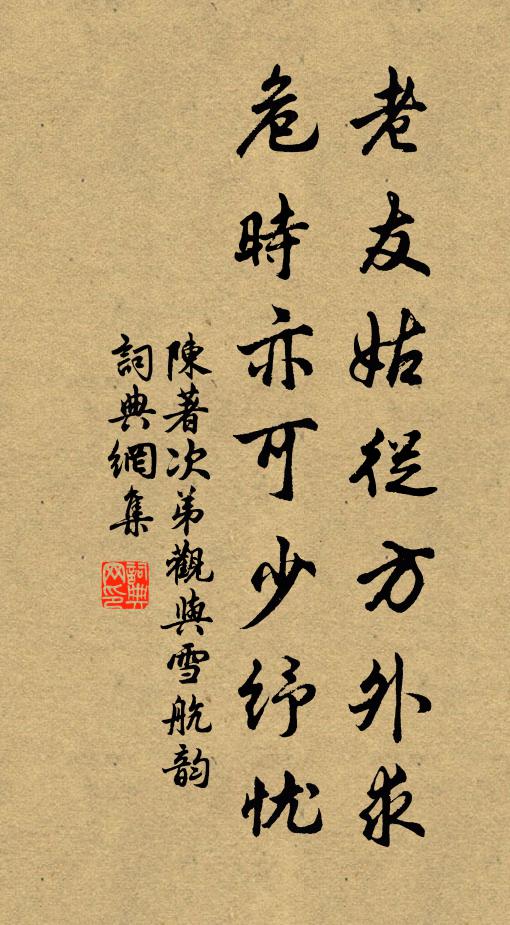 老友姑從方外求
危時亦可少紓忧
陳著次弟觀與雪航韵
詞典網集
詞典網印